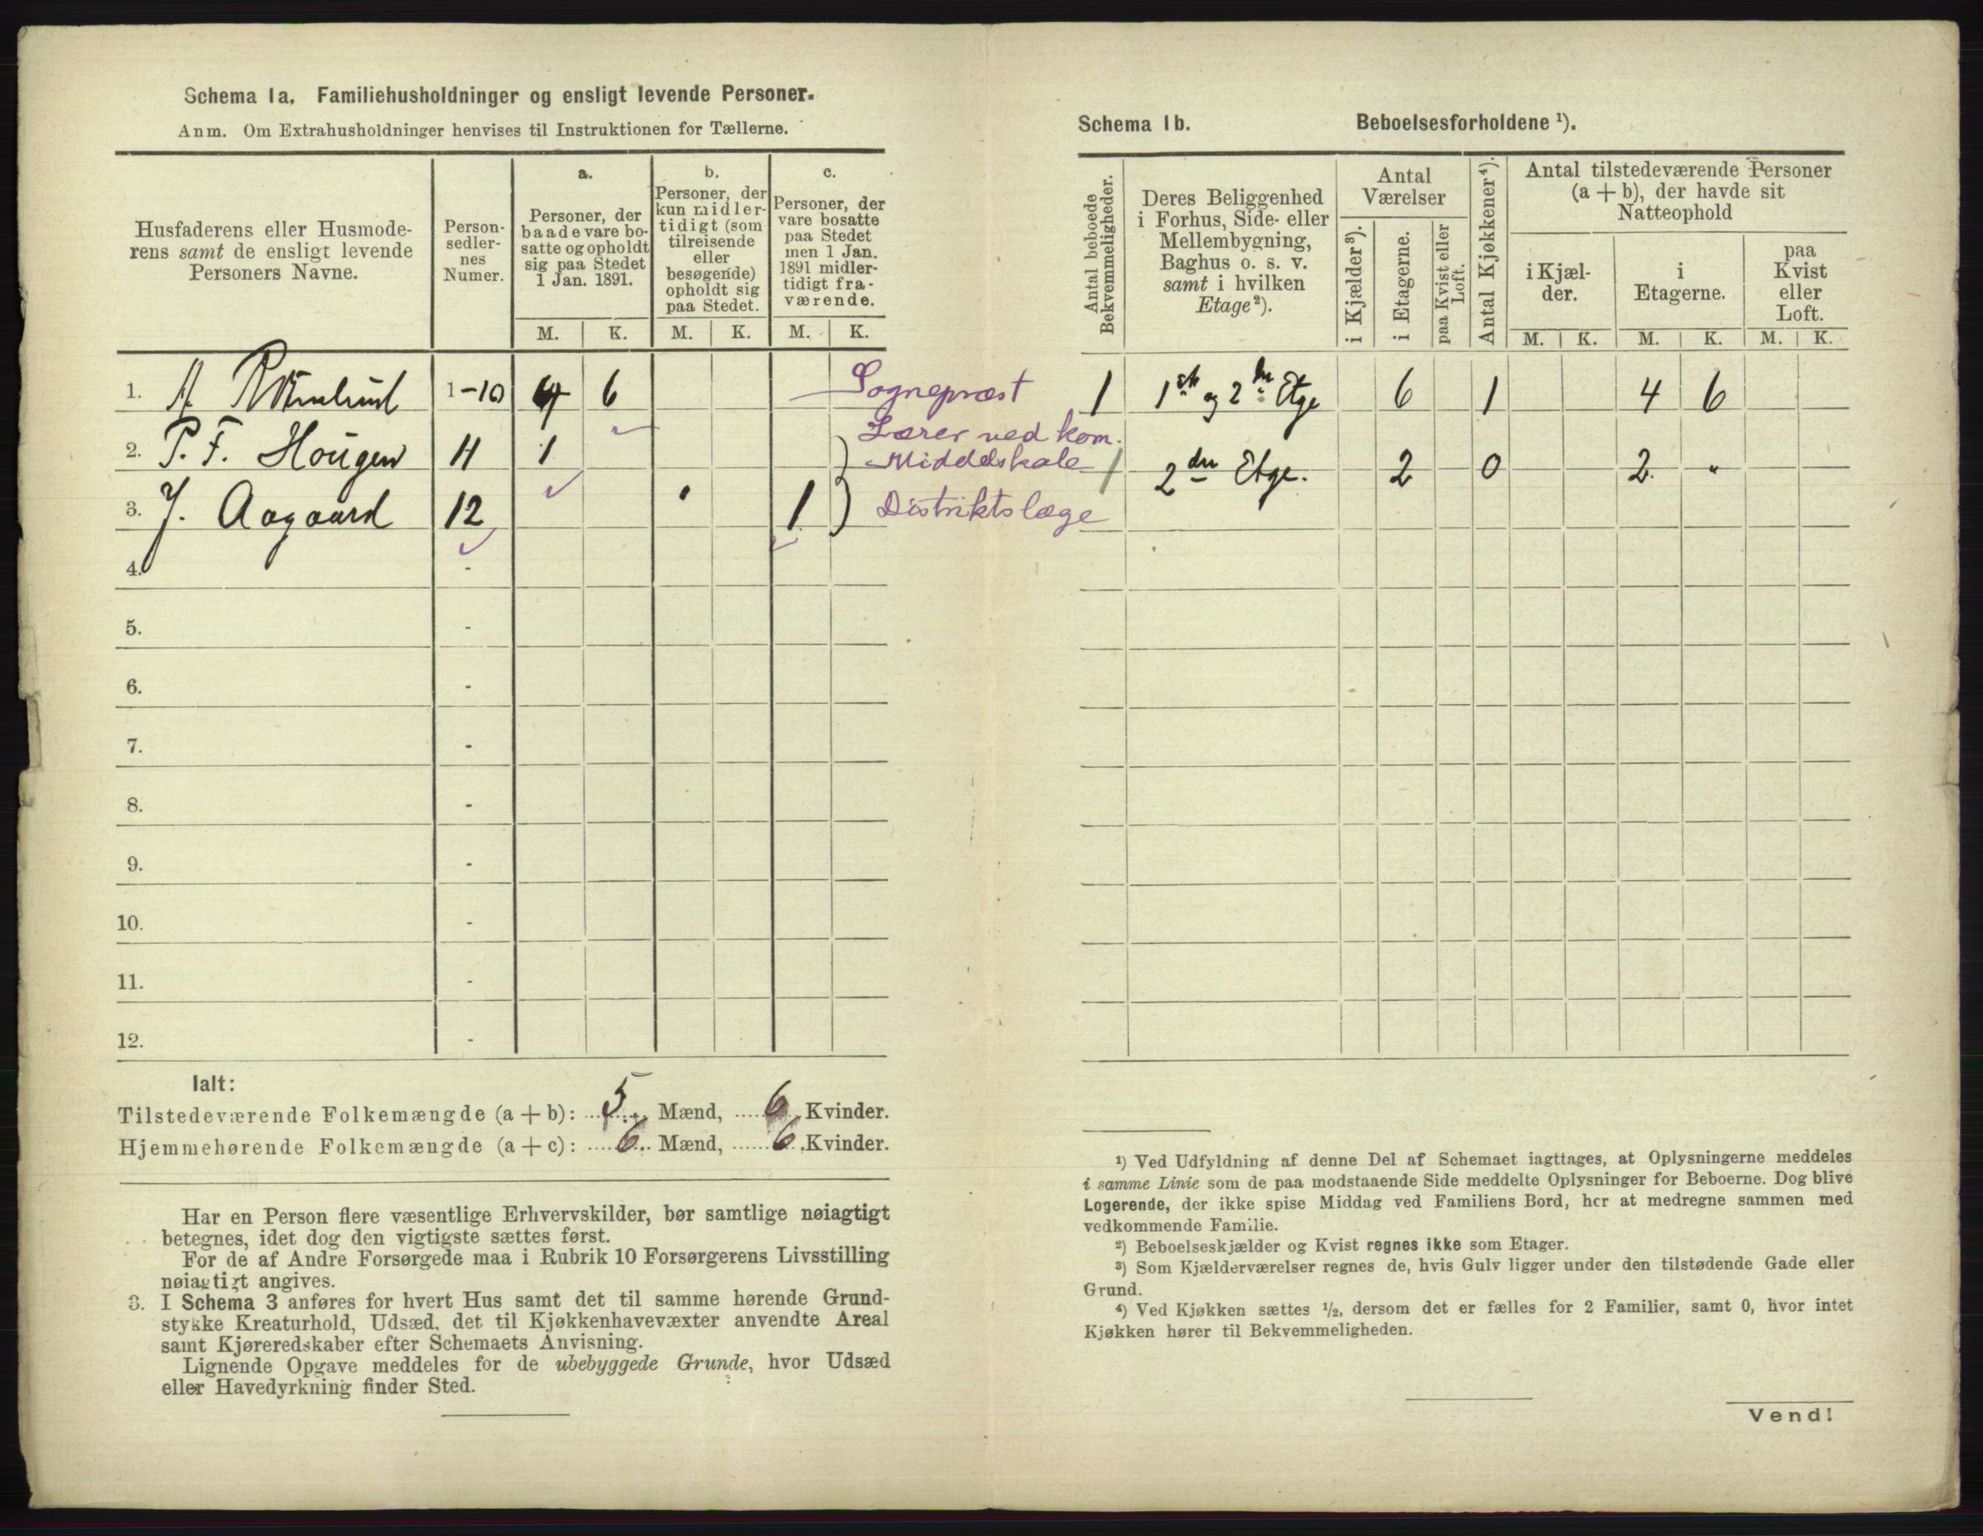 Schema 1a. Familiehusholdninger og ensligt levende Personer.
Anm. Om Extrahusholdninger henvises til Instruktionen for Tællerne.
Husfaderens eller Husmode-
rens samt de ensligt levende
Personers Navne.
Person-
sedler-
nes
Numer.
a.
Personer, der
baade vare bo-
satte og opholdt
sig paa Stedet
1 Jan. 1891.
b.
Personer, der
kun midler-
tidigt (som
tilreisende
eller
besøgende)
opholdt sig
paa Stedet.
c.
Personer, der
vare bosatte
paa Stedet
men 1 Jan.
1891 midler-
tidigt fra-
værende.
M. K. M. K. M. K.
1. A. 1-10 4 6 Sogneprest
2. P. F. Hougen 11 1 Lærer ved kom.
Middelskole
3. J. Aagaard 12 1 Distriktslæge
4. -
5. -
6. -
7. -
8. -
9. -
10. -
11. -
12. -
Ialt:
Tilstedeværende Folkemængde (a + b): 5 Mænd, 6 Kvinder.
Hjemmehørende Folkemængde (a + c): 6 Mænd, 6 Kvinder.
Har en Person flere væsentlige Erhvervskilder, bør samtlige nøiagtigt
betegnes, idet dog den vigtigste sættes først.
For de af Andre Forsørgede maa i Rubrik 10 Forsørgerens Livsstilling
nøiagtigt angives.
3. I Schema 3 anføres for hvert Hus samt det til samme hørende Grund-
stykke Kreaturhold, Udsæd, det til Kjøkkenhavevæxter anvendte Areal
samt Kjøreredskaber efter Schemaets Anvisning.
Lignende Opgave meddeles for de ubebyggede Grunde, hvor Udsæd
eller Havedyrkning finder Sted.
Schema 1b. Beboelsesforholdene ¹).
Antal beboede
Bekvemmeligheder.
Deres Beliggenhed
i Forhus, Side- eller
Mellembygning,
Baghus o. s. v.
samt i hvilken
Etage²).
Antal
Værelser
i Kjælder³).
i Etagerne.
paa Kvist eller
Loft.
Antal Kjøkkener⁴).
Antal tilstedeværende Personer
(a + b), der havde sit
Natteophold
i Kjæl-
der.
i
Etagerne.
paa
Kvist
eller
Loft.
M. K. M. K. M. K.
1 1ste og 2den Etge 6 1 4 6
1 2den Etge. 2 0 2 "
¹) Ved Udfyldning af denne Del af Schemaet iagttages, at Oplysningerne meddeles
i samme Linie som de paa modstaaende Side meddelte Oplysninger for Beboerne. Dog blive
Logerende, der ikke spise Middag ved Familiens Bord, her at medregne sammen med
vedkommende Familie.
²) Beboelseskjælder og Kvist regnes ikke som Etager.
³) Som Kjælderværelser regnes de, hvis Gulv ligger under den tilstødende Gade eller
Grund.
⁴) Ved Kjøkken sættes ½, dersom det er fælles for 2 Familier, samt 0, hvor intet
Kjøkken hører til Bekvemmeligheden.
Vend!